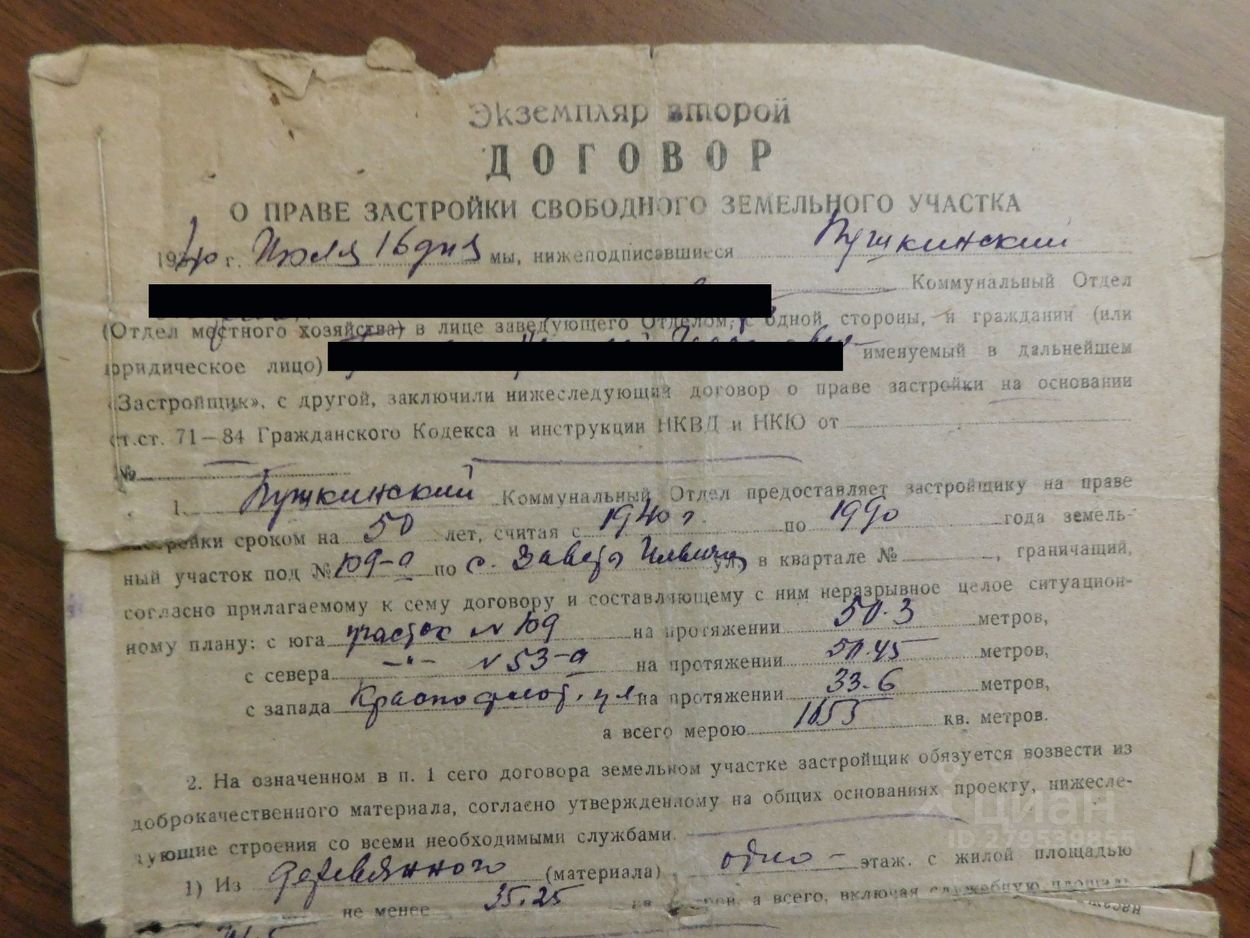 Экземпляр второй
ДОГОВОР
О ПРАВЕ ЗАСТРОЙКИ СВОБОДНОГО ЗЕМЕЛЬНОГО УЧАСТКА
1940 г. Июля 16 дня мы, нижеподписавшиеся Пушкинский
Коммунальный Отдел
(Отдел местного хозяйства) в лице заведующего Отделом, с одной стороны, и гражданин (или
юридическое лицо) именуемый в дальнейшем
«Застройщик», с другой, заключили нижеследующий договор о праве застройки на основании
ст.ст. 71—84 Гражданского Кодекса и инструкции НКВД и НКЮ от
№
1. Пушкинский Коммунальный Отдел предоставляет застройщику на праве
застройки сроком на 50 лет, считая с 1940 г. по 1990 года земель-
ный участок под № 109-а по с. Заветы Ильича ул. в квартале № , граничащий,
согласно прилагаемому к сему договору и составляющему с ним неразрывное целое ситуацион-
ному плану: с юга участок № 109 на протяжении 50.3 метров,
с севера -"- № 53-а на протяжении 50.45 метров,
с запада Краснофлот. ул. на протяжении 33-6 метров,
а всего мерою кв. метров.
2. На означенном в п. 1 сего договора земельном участке застройщик обязуется возвести из
доброкачественного материала, согласно утвержденному на общих основаниях проекту, нижесле-
дующие строения со всеми необходимыми службами.
1) Из деревянного (материала) одно- этаж. с жилой площадью
не менее 35.25 а всего, включая служебную площадь
циан